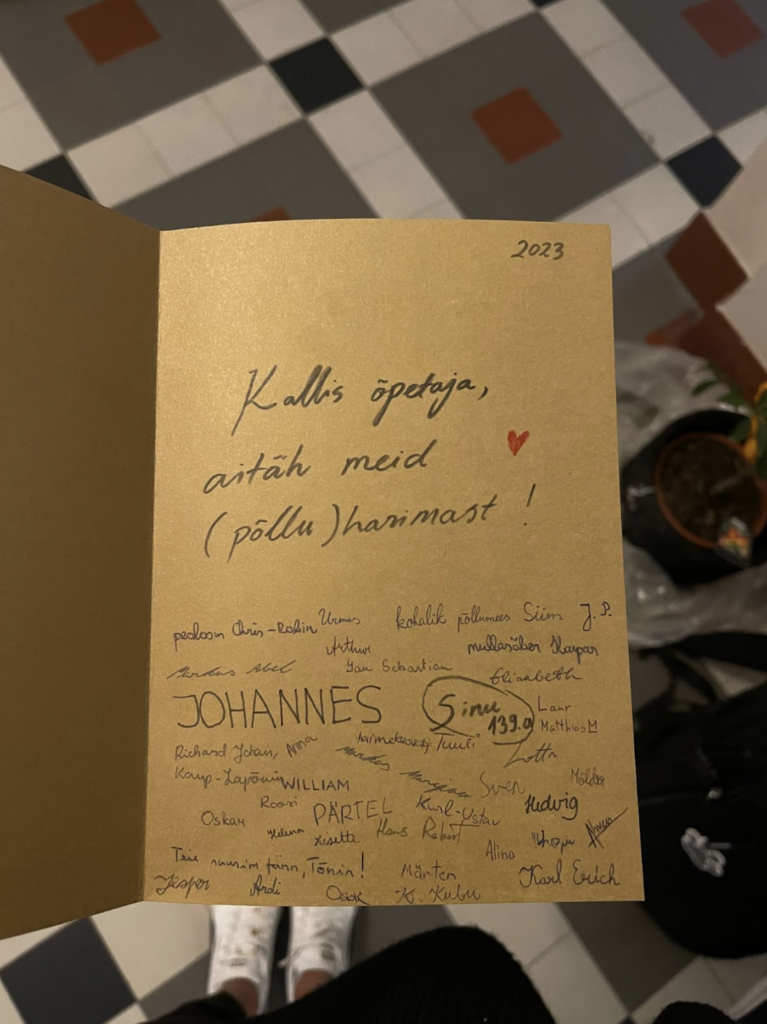 2023
Kallis õpetaja,
aitäh meid
(põllu)harimast !
pedoon Chris-Robin Urmas kohalik põllumees Siim J.P.
Arthur mullasõber Kaspar
Markus Abel Jan Sebastian Elisabeth
JOHANNES Sinu 139.a Laur
Matthias M
Richard Johan, Anna Tuuli Lotta
Markus
WILLIAM Sven Mölder
Oskar Roosi PÄRTEL Karl-Ustav Hedvig
Helena Lisette Hans Robert
Alina
Teie suurim fänn, Tõnin!
Jesper Ardi Märten Karl Erich
K. Kubu